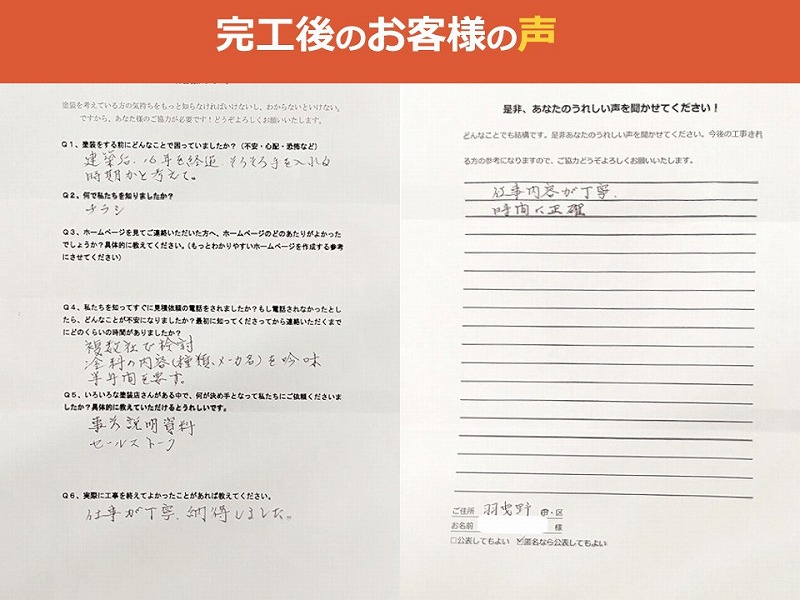 完工後のお客様の声
塗装を考えている方の気持ちをもっと知らなければいけないし、わからないといけない。
ですから、あなた様のご協力が必要です！どうぞよろしくお願いいたします。
Q1、塗装をする前にどんなことで困っていましたか？（不安・心配・恐怖など）
建築后、16年を経過 そろそろ手を入れる
時期かと考えて。
Q2、何で私たちを知りましたか？
チラシ
Q3、ホームページを見てご連絡いただいた方へ、ホームページのどのあたりがよかった
でしょうか？具体的に教えてください。（もっとわかりやすいホームページを作成する参考
にさせてください）
Q4、私たちを知ってすぐに見積依頼の電話をされましたか？もし電話されなかったとし
たら、どんなことが不安になりましたか？最初に知ってくださってから連絡いただくまで
にどのくらいの時間がありましたか？
複数社で検討
塗料の内容（種類、メーカ名）を吟味
半年間を要す。
Q5、いろいろな塗装店さんがある中で、何が決め手となって私たちにご依頼くださいま
したか？具体的に教えていただけるとうれしいです。
事前説明資料
セールストーク
Q6、実際に工事を終えてよかったことがあれば教えてください。
仕事が丁寧、納得しました。
是非、あなたのうれしい声を聞かせてください！
どんなことでも結構です。是非あなたのうれしい声を聞かせてください。今後の工事され
る方の参考になりますので、ご協力どうぞよろしくお願いいたします。
仕事内容が丁寧、
時間に正確
ご住所 羽曳野 市・区
お名前 様
□公表してもよい ☑匿名なら公表してもよい